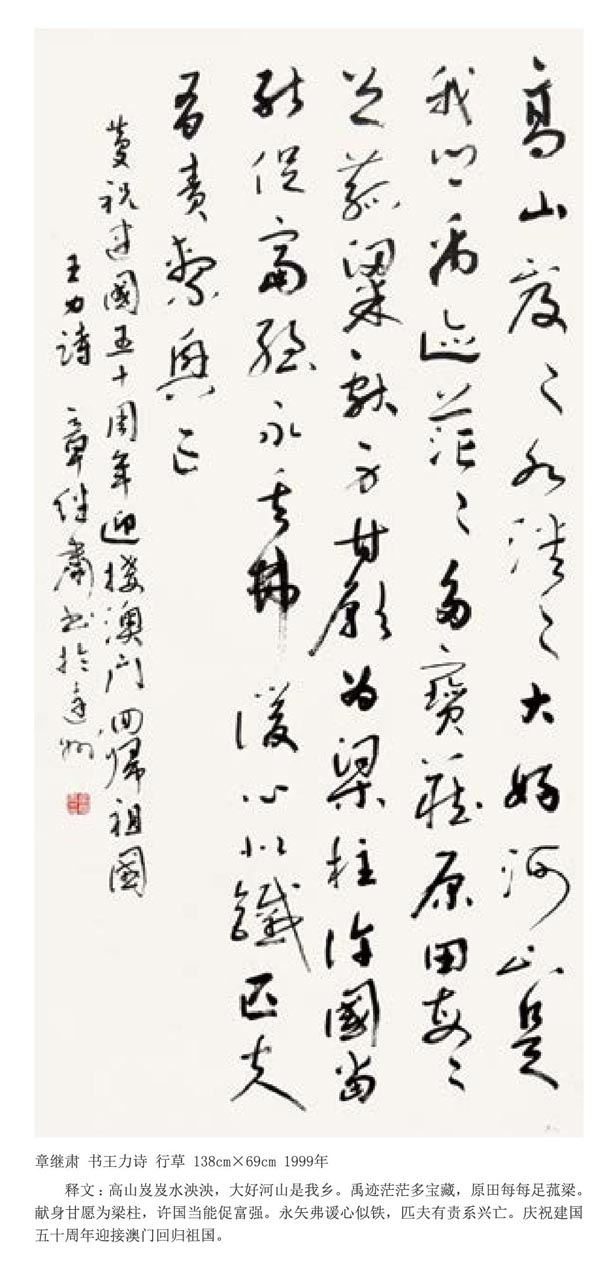 高山岌々水泱々大好河山是
我鄉禹迹茫々多寶藏原田每々
足菰粱獻身甘願为梁柱許國當
能促富强永矢弗諼心似鐵匹夫
有責繫興亡
慶祝建國五十周年迎接澳门回歸祖國
王力詩 章继肅书於達州
章继肃 书王力诗 行草 138cm×69cm 1999年
释文：高山岌岌水泱泱，大好河山是我乡。禹迹茫茫多宝藏，原田每每足菰粱。
献身甘愿为梁柱，许国当能促富强。永矢弗谖心似铁，匹夫有责系兴亡。庆祝建国
五十周年迎接澳门回归祖国。